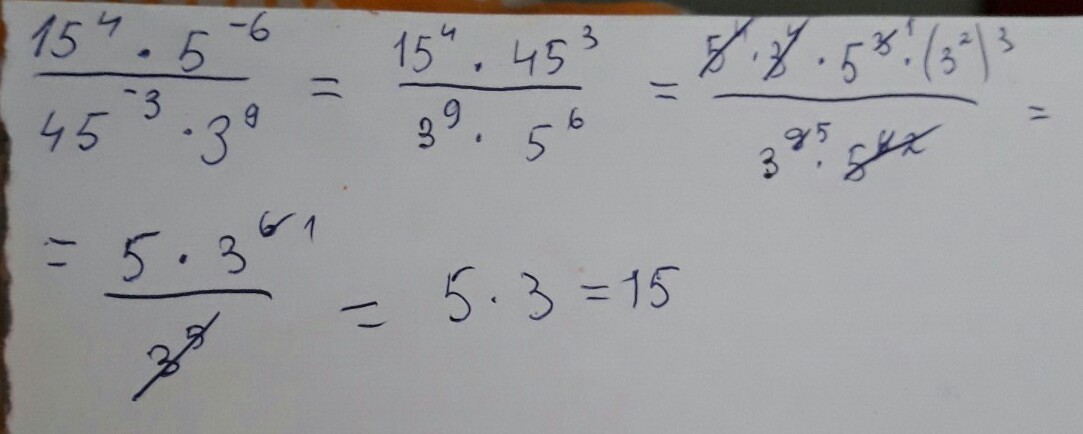 15⁴ · 5⁻⁶ / 45⁻³ · 3⁹ = 15⁴ · 45³ / 3⁹ · 5⁶ = 5⁴ · 3⁴ · 5³ ¹ · (3²)³ / 3⁹ ⁵ · 5⁶ ² =
= 5 · 3⁶ ¹ / 3⁵ = 5 · 3 = 15